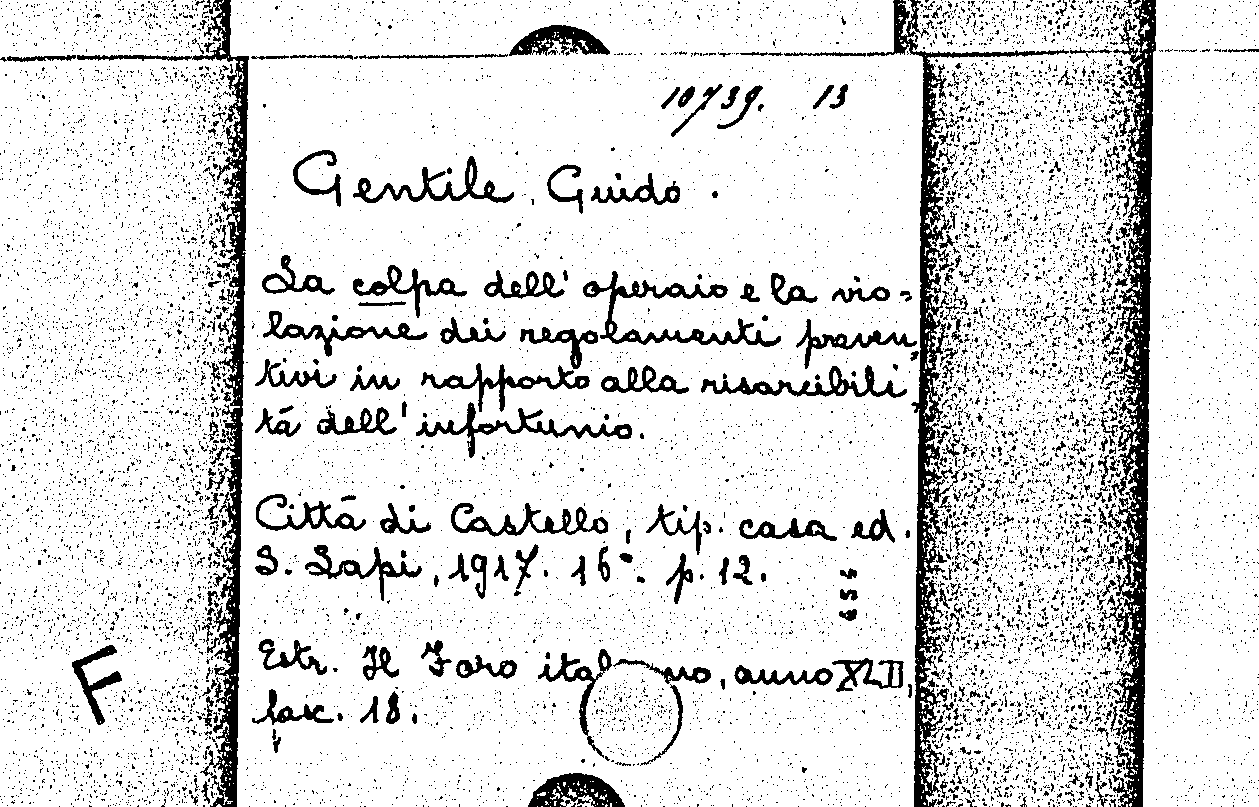 10739. 13
Gentile, Guido.
La colpa dell' operaio e la vio=
lazione dei regolamenti preven,
tivi in rapporto alla risarcibili,
tà dell' infortunio.
Città di Castello, tip. casa ed.
S. Lapi, 1917. 16°. p. 12.
Estr. Il Foro ital no, anno XLII,
fasc. 18.
F